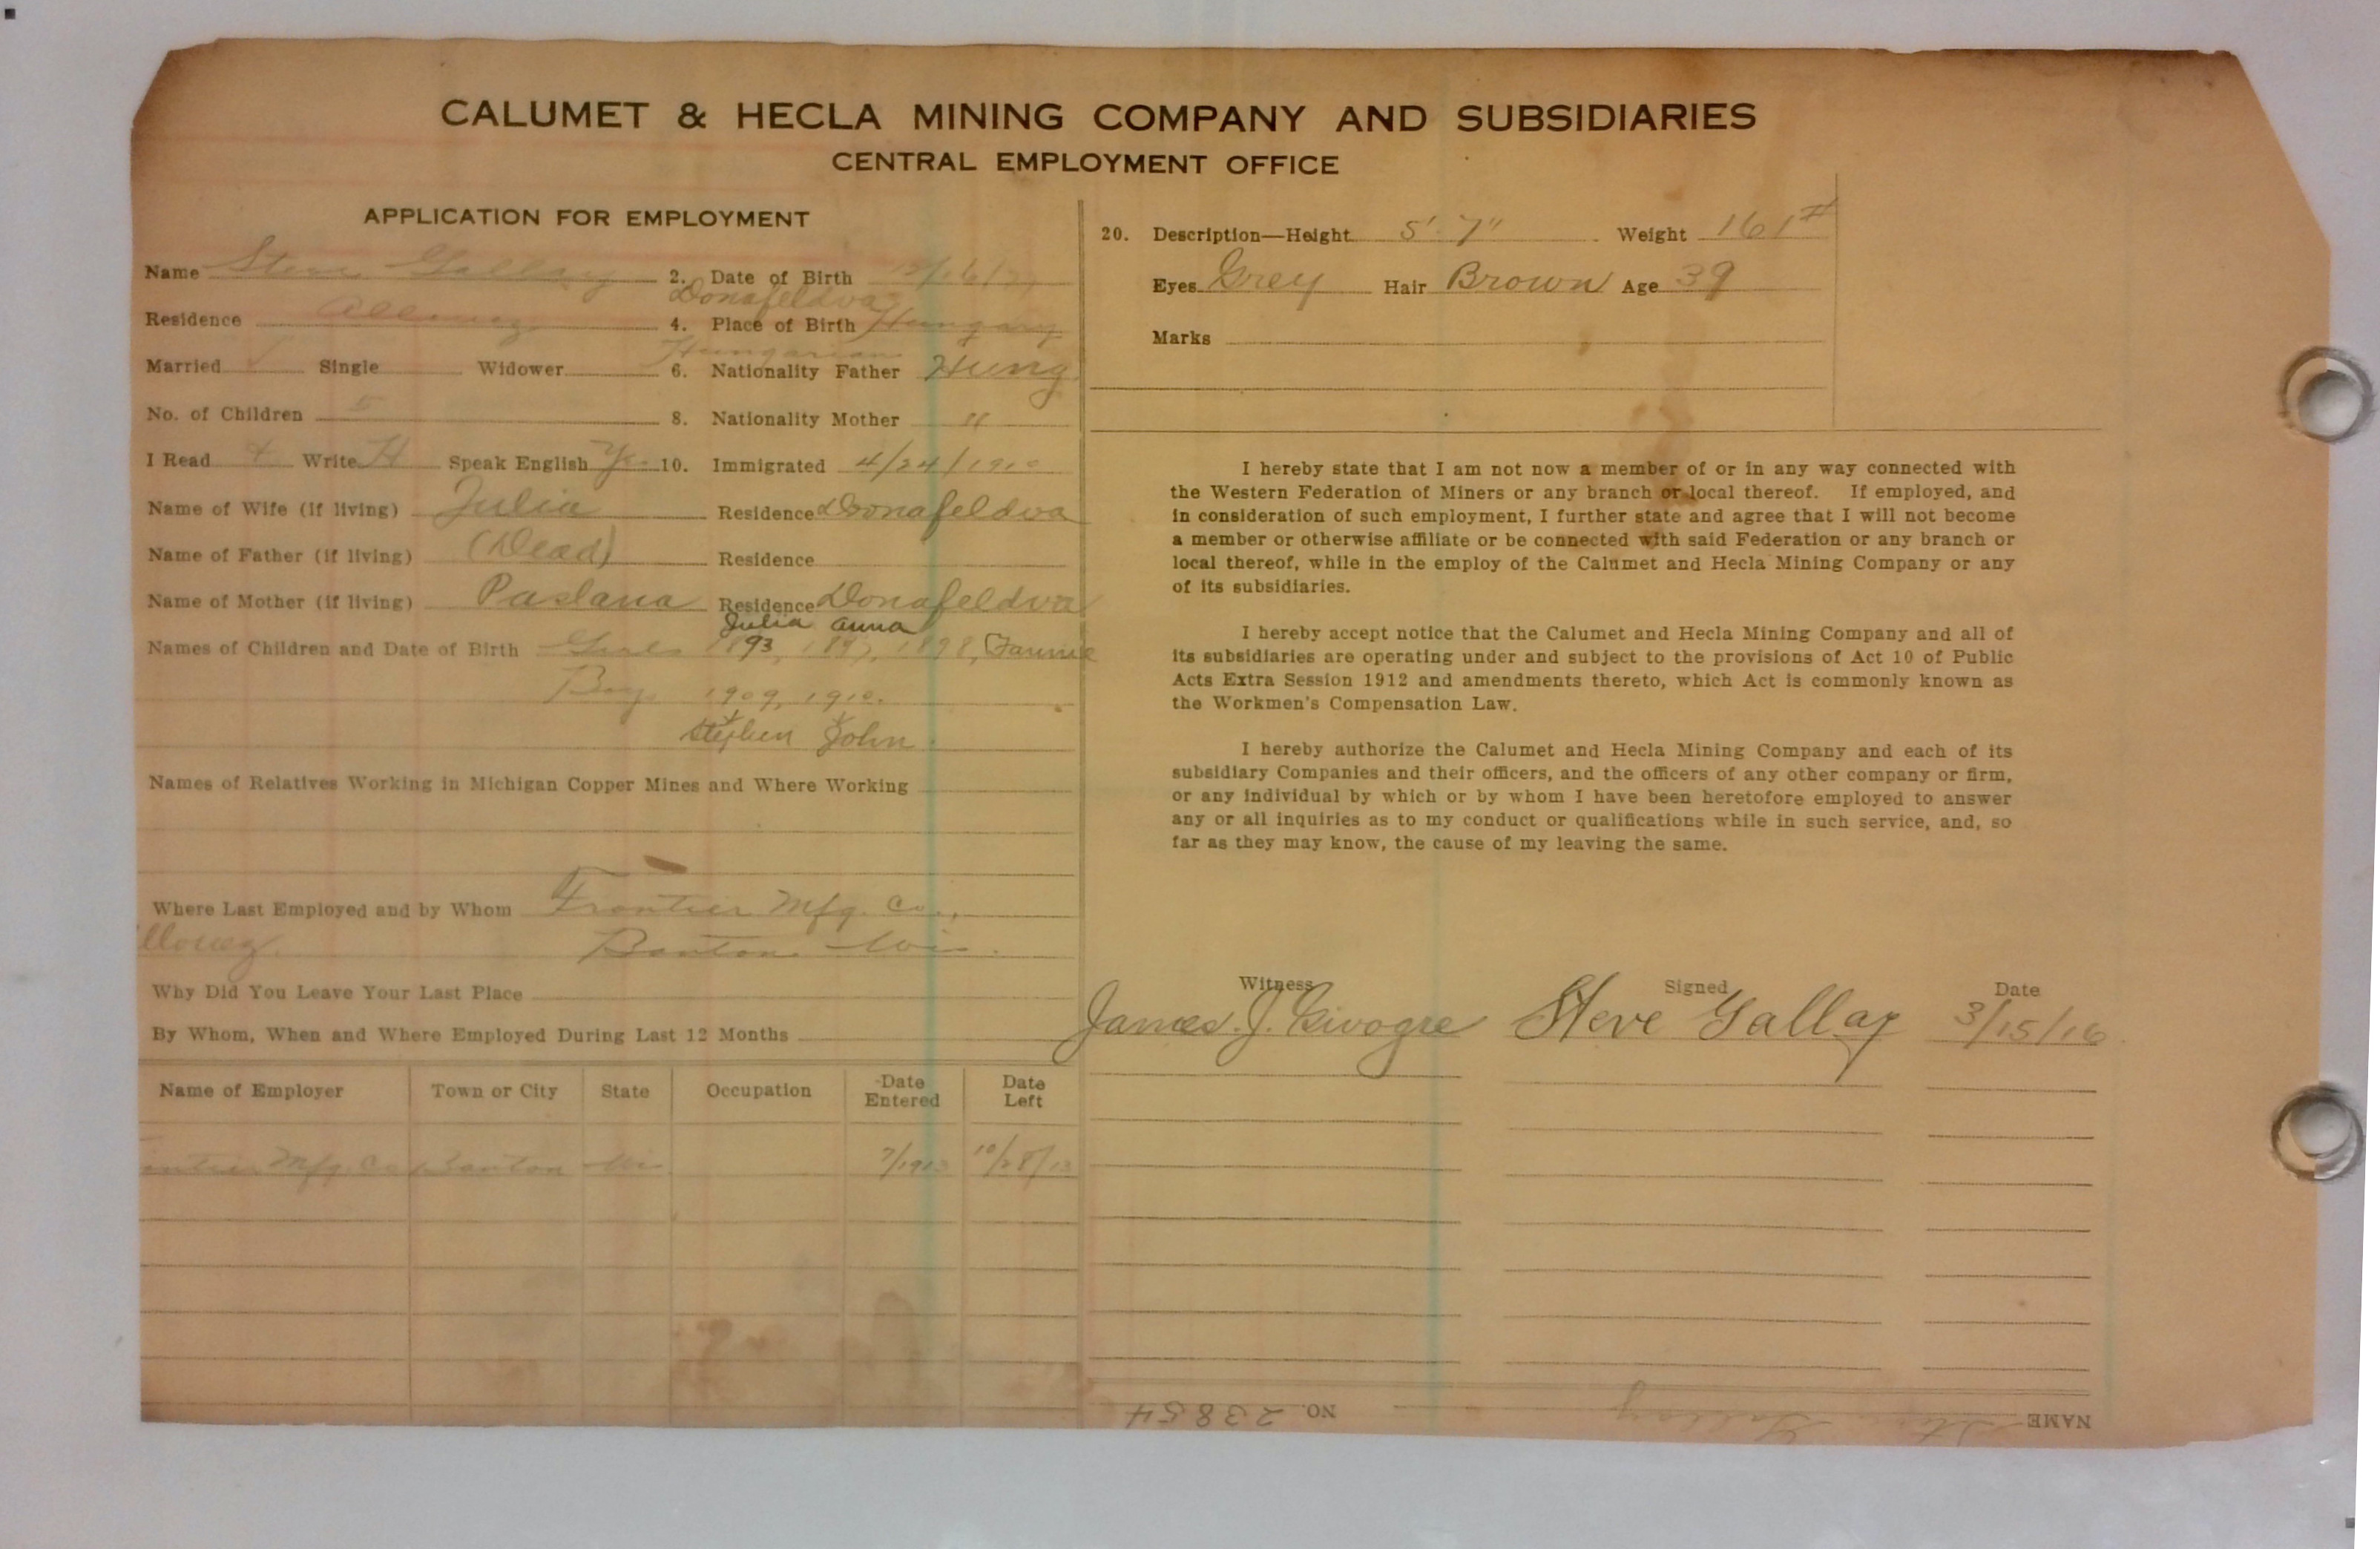 CALUMET & HECLA MINING COMPANY AND SUBSIDIARIES
CENTRAL EMPLOYMENT OFFICE
APPLICATION FOR EMPLOYMENT
Name Steve Gallay 2. Date of Birth
Donafeldva
Residence Allouez 4. Place of Birth Hungary
Hungarian
Married Single Widower 6. Nationality Father Hung
No. of Children 5 8. Nationality Mother "
I Read Write H Speak English Yes 10. Immigrated 4/24/1910
Name of Wife (if living) Julia Residence Donafeldva
Name of Father (if living) (Dead) Residence
Name of Mother (if living) Paslana Residence Donafeldva
Julia Anna
Names of Children and Date of Birth Girls 1893, 1898, Fannie
Boys 1909, 1910.
Stephen John
Names of Relatives Working in Michigan Copper Mines and Where Working
Where Last Employed and by Whom Frontier Mfg. Co.,
llouez. Banton Wis.
Why Did You Leave Your Last Place
By Whom, When and Where Employed During Last 12 Months
Name of Employer Town or City State Occupation Date Entered Date Left
ontier Mfg. Co Banton Wis 7/1913 10/28/13
20. Description—Height 5' 7" Weight 161#
Eyes Grey Hair Brown Age 39
Marks
I hereby state that I am not now a member of or in any way connected with
the Western Federation of Miners or any branch or local thereof. If employed, and
in consideration of such employment, I further state and agree that I will not become
a member or otherwise affiliate or be connected with said Federation or any branch or
local thereof, while in the employ of the Calumet and Hecla Mining Company or any
of its subsidiaries.
I hereby accept notice that the Calumet and Hecla Mining Company and all of
its subsidiaries are operating under and subject to the provisions of Act 10 of Public
Acts Extra Session 1912 and amendments thereto, which Act is commonly known as
the Workmen's Compensation Law.
I hereby authorize the Calumet and Hecla Mining Company and each of its
subsidiary Companies and their officers, and the officers of any other company or firm,
or any individual by which or by whom I have been heretofore employed to answer
any or all inquiries as to my conduct or qualifications while in such service, and, so
far as they may know, the cause of my leaving the same.
Witness Signed Date
James J. Steve Gallay 3/15/16
NAME Steve Gallay NO. 23854